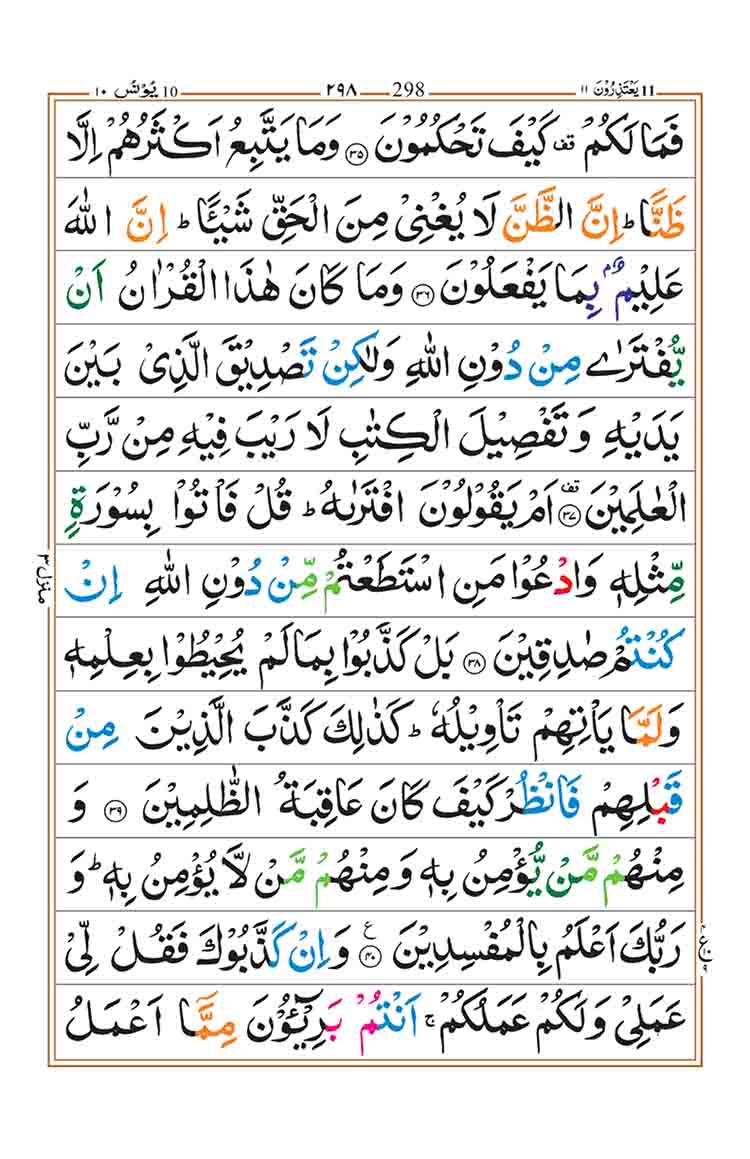 ۱۰ يُوْنُس 10 ۲۹۸ 298 يَعْتَذِرُوْنَ ۱۱ 11
فَمَا لَكُمْ قف كَيْفَ تَحْكُمُوْنَ ۝۳۵ وَمَا يَتَّبِعُ اَكْثَرُهُمْ اِلَّا
ظَنًّا ؕ اِنَّ الظَّنَّ لَا يُغْنِىْ مِنَ الْحَقِّ شَيْـًٔا ؕ اِنَّ اللّٰهَ
عَلِيْمٌۢ بِمَا يَفْعَلُوْنَ ۝۳۶ وَمَا كَانَ هٰذَا الْقُرْاٰنُ اَنْ
يُّفْتَرٰى مِنْ دُوْنِ اللّٰهِ وَلٰكِنْ تَصْدِيْقَ الَّذِىْ بَيْنَ
يَدَيْهِ وَتَفْصِيْلَ الْكِتٰبِ لَا رَيْبَ فِيْهِ مِنْ رَّبِّ
الْعٰلَمِيْنَ ۝۳۷ قف اَمْ يَقُوْلُوْنَ افْتَرٰىهُ ؕ قُلْ فَاْتُوْا بِسُوْرَةٍ
مِّثْلِهٖ وَادْعُوْا مَنِ اسْتَطَعْتُمْ مِّنْ دُوْنِ اللّٰهِ اِنْ
منزل ۳
كُنْتُمْ صٰدِقِيْنَ ۝۳۸ بَلْ كَذَّبُوْا بِمَا لَمْ يُحِيْطُوْا بِعِلْمِهٖ
وَلَمَّا يَاْتِهِمْ تَاْوِيْلُهٗ ؕ كَذٰلِكَ كَذَّبَ الَّذِيْنَ مِنْ
قَبْلِهِمْ فَانْظُرْ كَيْفَ كَانَ عَاقِبَةُ الظّٰلِمِيْنَ ۝۳۹ وَ
مِنْهُمْ مَّنْ يُّؤْمِنُ بِهٖ وَمِنْهُمْ مَّنْ لَّا يُؤْمِنُ بِهٖ ؕ وَ
رَبُّكَ اَعْلَمُ بِالْمُفْسِدِيْنَ ۝۴۰ ع وَاِنْ كَذَّبُوْكَ فَقُلْ لِّىْ
عَمَلِىْ وَلَكُمْ عَمَلُكُمْ ۚ اَنْتُمْ بَرِيْٓـُٔوْنَ مِمَّا اَعْمَلُ